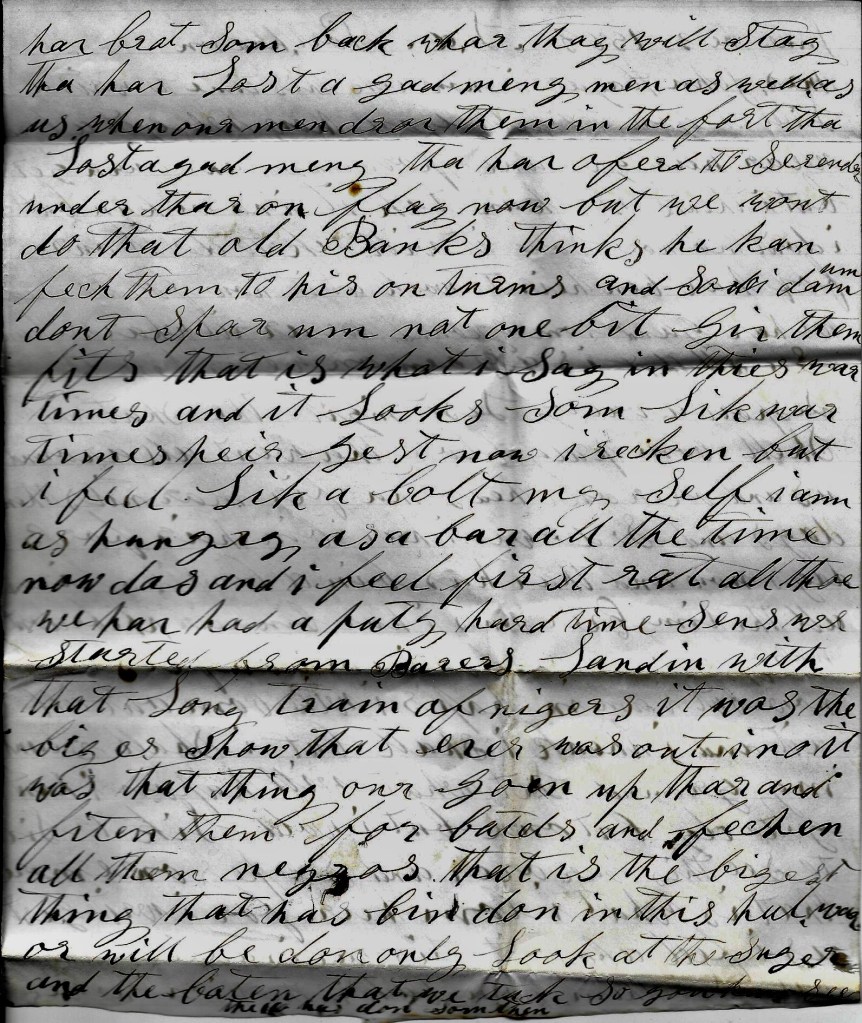 har brat Som back whar thay will Stay
tha har Lost a gad meny men as well as
us when our men dror them in the fort tha
Lost a gad meny tha har oferd to Serender
under thar on flag now but we wont
do that old Banks thinks he kan
fech them to his on turms and So do i dam um
dont Spar um nat one bit Giv them
fits that is what i Say in thies war
times and it Looks Som Lik war
times heir Gest now i recken but
i feel Lik a bolt my Self i am
as hungry as a bar all the time
now das and i feel first rat all tho
we har had a puty hard time Sens we
started from Barers Landin with
that Long train of nigers it was the
biges Show that ever was out in it
was that thing our Goen up thar and
fiten them for batels and fechen
all them negros that is the bigest
thing that has bin don in this hul war
or will be don only Look at the Suger
and the Coten that we tuck So
there has don Som then